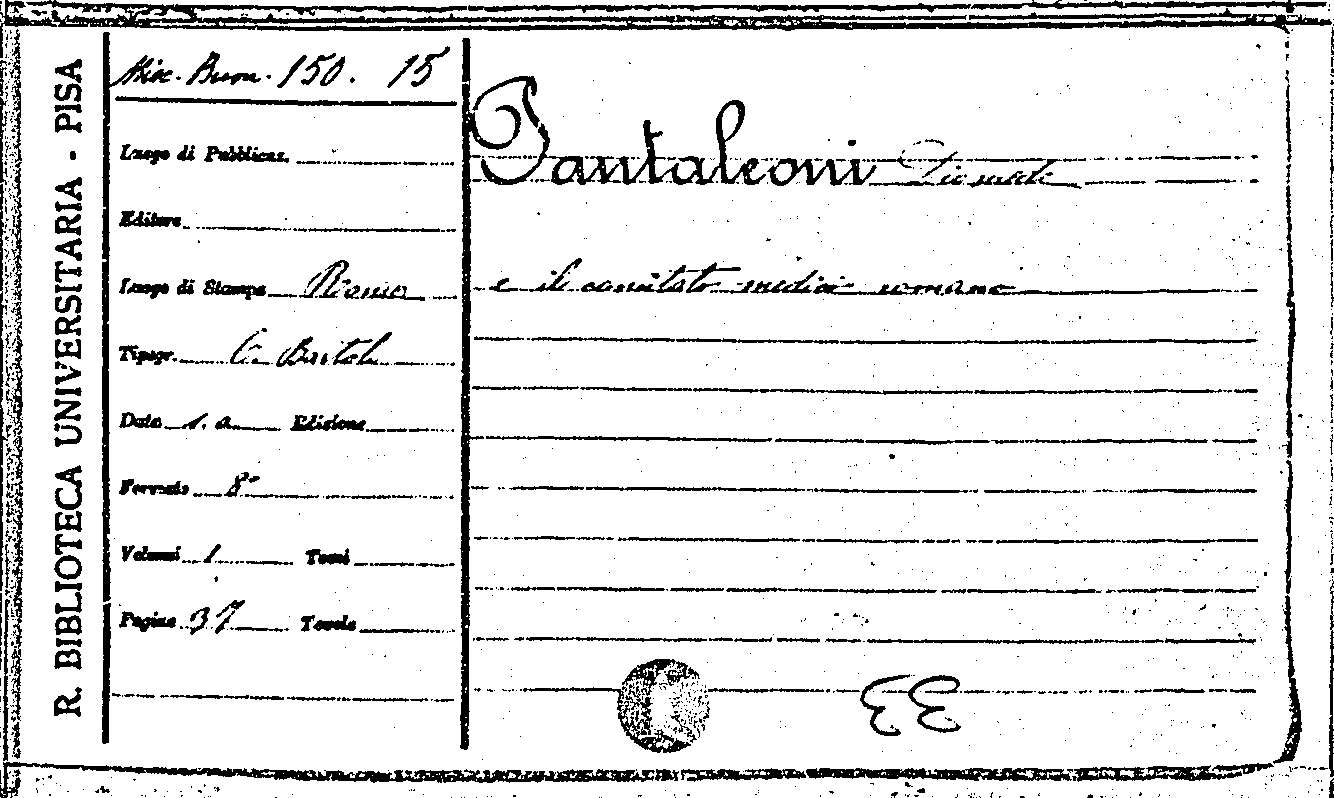 R. BIBLIOTECA UNIVERSITARIA - PISA
Misc. Buon. 150. 15
Luogo di Pubblicaz.
Editore
Luogo di Stampa Roma
Tipogr. C. Bartoli
Data s. a. Edizione
Formato 8°
Volumi 1 Tomi
Pagine 37 Tavole
Pantaleoni Diomede
e il comitato medico romano